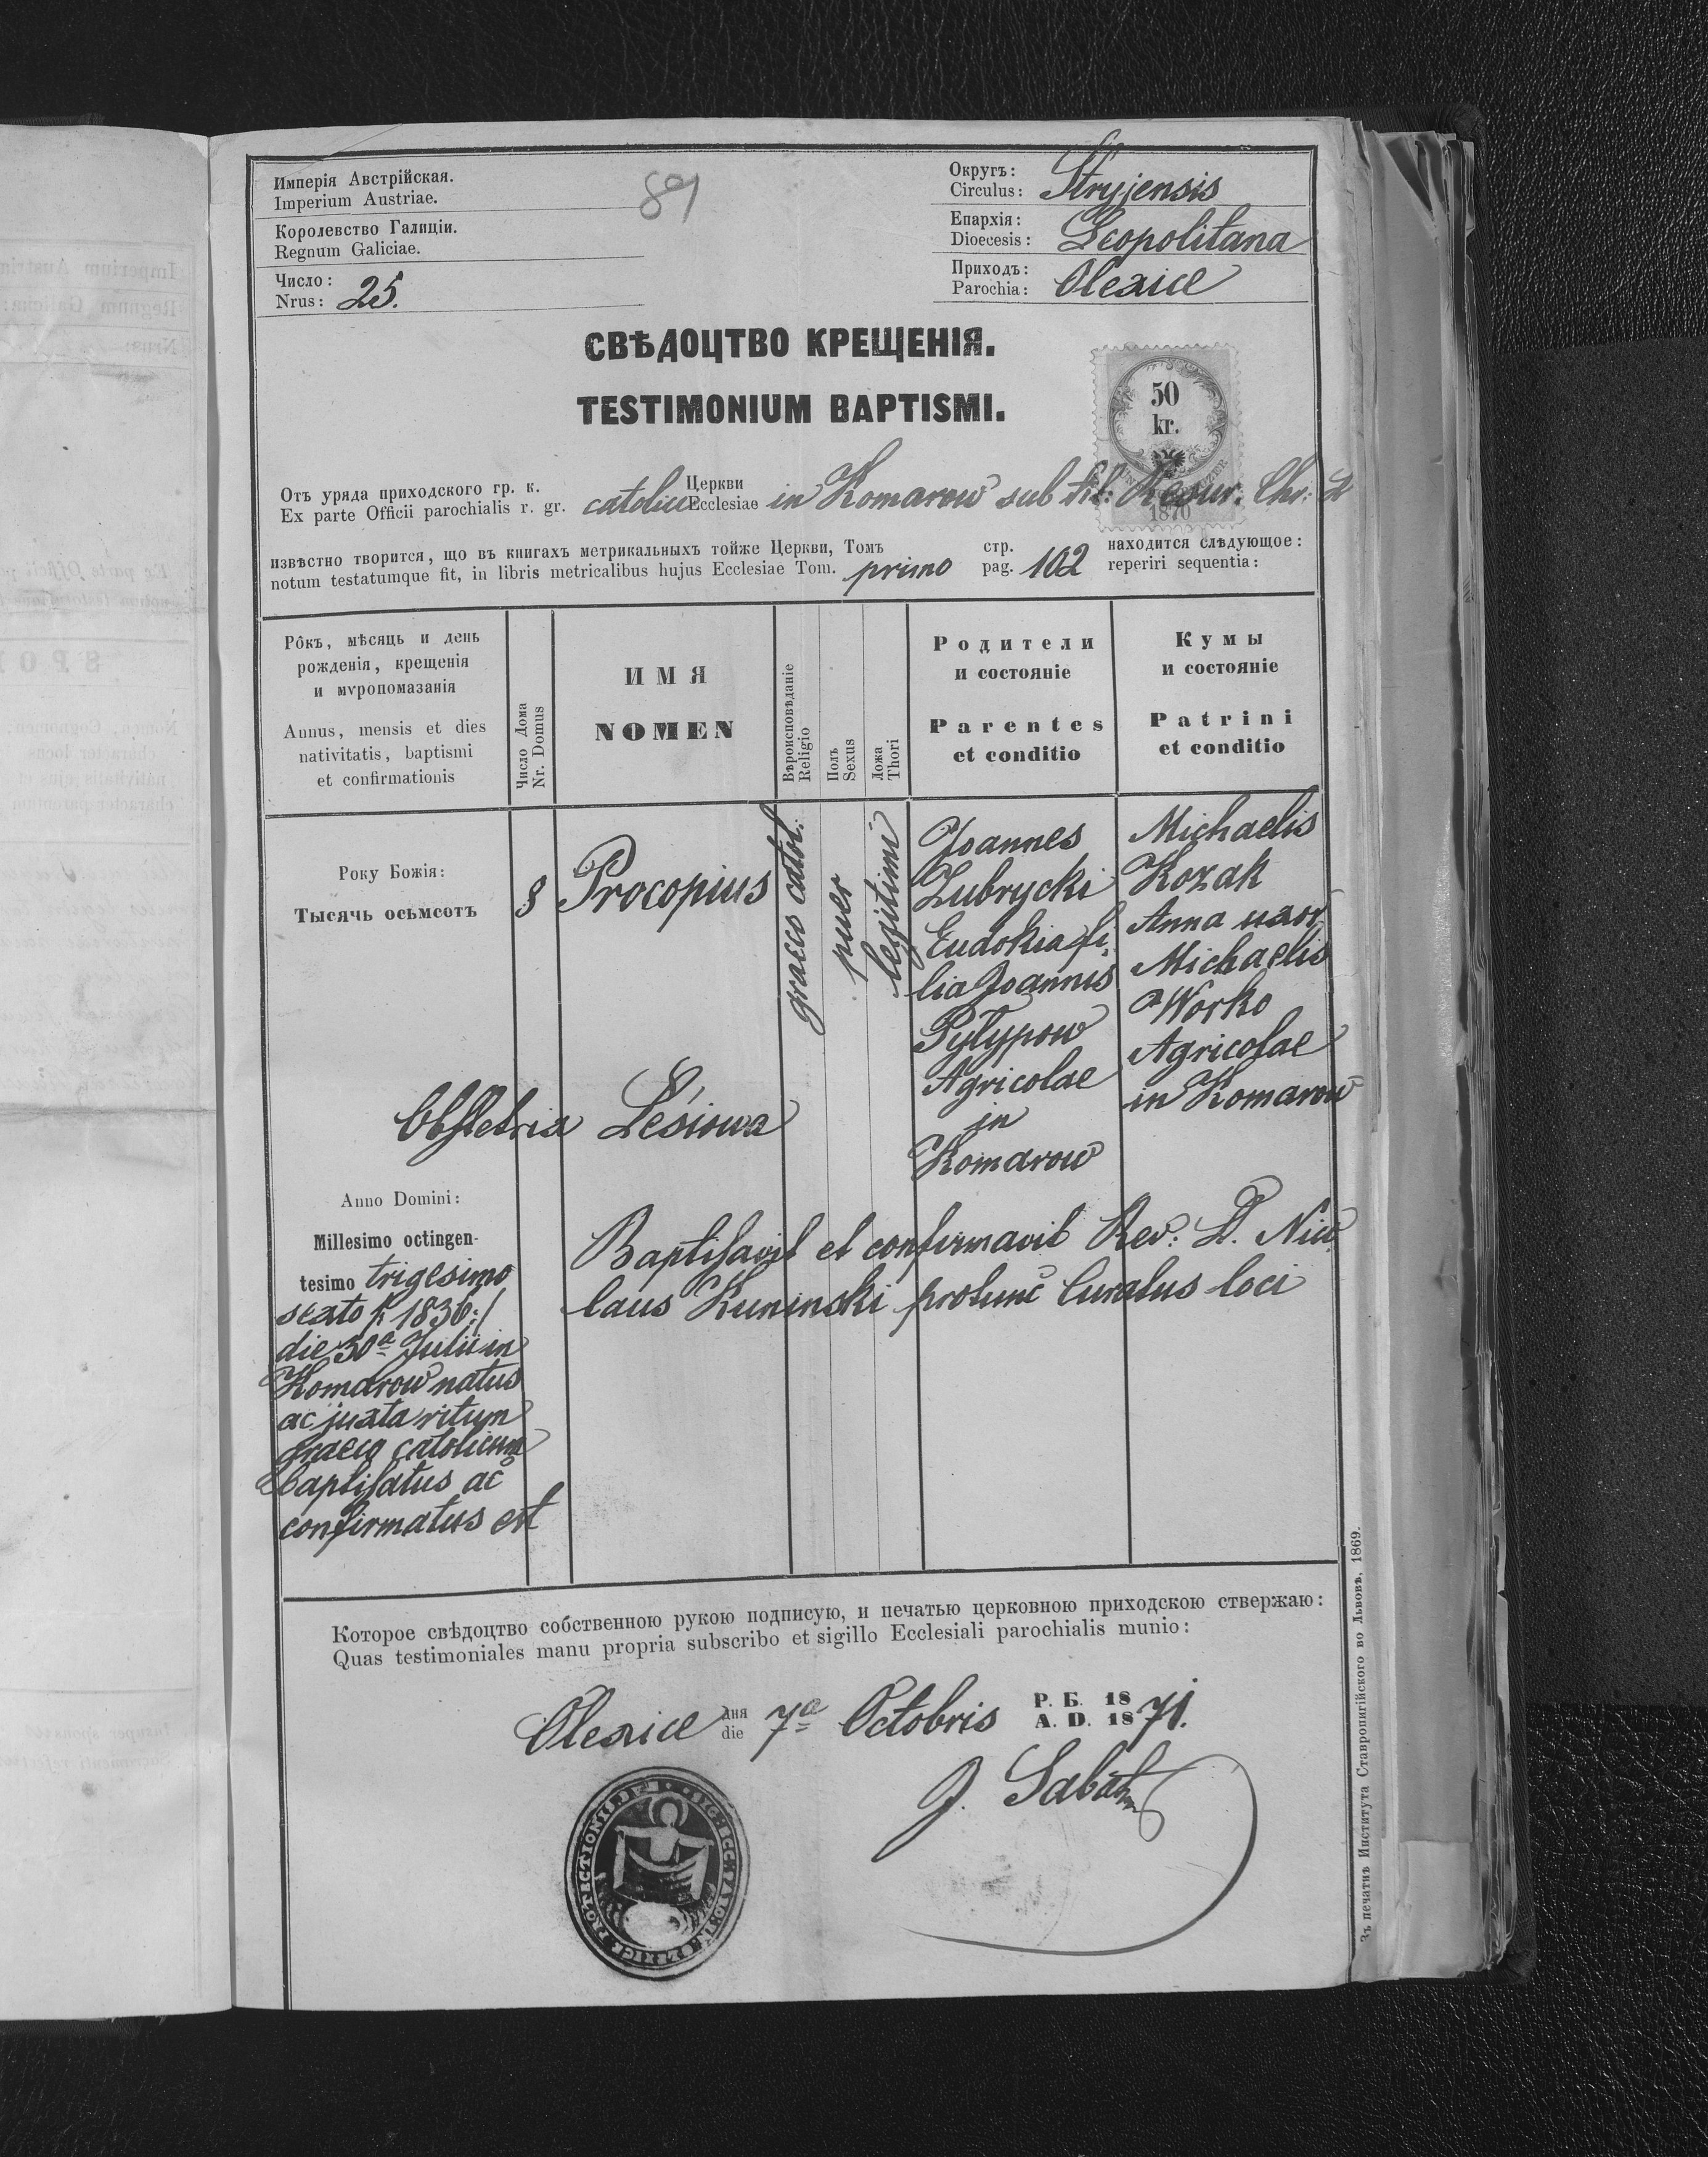 Имперія Австрійская.
Imperium Austriae.
89
Королевство Галиціи.
Regnum Galiciae.
Число:
Nrus: 25.
Округъ:
Circulus: Stryjensis
Епархія:
Dioecesis: Leopolitana
Приходъ:
Parochia: Olexice
СВѢДОЦТВО КРЕЩЕНІЯ.
TESTIMONIUM BAPTISMI.
50
kr.
1870
Отъ уряда приходского гр. к. Церкви
Ex parte Officii parochialis r. gr. catolicae Ecclesiae in Komarow sub tit: Resur. Chr: D
извѣстно творится, що въ книгахъ метрикальныхъ тойже Церкви, Томъ стр. находится слѣдующое:
notum testatumque fit, in libris metricalibus hujus Ecclesiae Tom. primo pag. 102 reperiri sequentia:
Рôкъ, мѣсяць и день
рожденія, крещенія
и мѵропомазанія
Annus, mensis et dies
nativitatis, baptismi
et confirmationis
Число Дома
Nr. Domus
ИМЯ
NOMEN
Вѣроисповѣданіе
Religio
Полъ
Sexus
Ложа
Thori
Родители
и состояніе
Parentes
et conditio
Кумы
и состояніе
Patrini
et conditio
Року Божія:
Тысячь осьмсотъ
8
Procopius
graeco catol.
puer
legitimi
Joannes
Zubrycki
Eudokia fi
lia Joannis
Pylypow
Agricolae
in
Komarow
Michaelis
Kozak
Anna uxor
Michaelis
Worko
Agricolae
in Komarow
Obstetrix Lesiowa
Anno Domini:
Millesimo octingen-
tesimo trigesimo
sexto /: 1836 :/
die 30a Julii in
Komarow natus
ac juxta ritum
graeco catolicum
baptisatus ac
confirmatus est
Baptisavit et confirmavit Rev: D. Nico
laus Kuninski protunc Curatus loci
Которое свѣдоцтво собственною рукою подписую, и печатью церковною приходскою стверждаю:
Quas testimoniales manu propria subscribo et sigillo Ecclesiali parochialis munio:
Olexice дня
die 7a Octobris Р. Б. 18
A. D. 1871.
J. Sabat
Зъ печатнѣ Института Ставропигійского во Львовѣ, 1869.